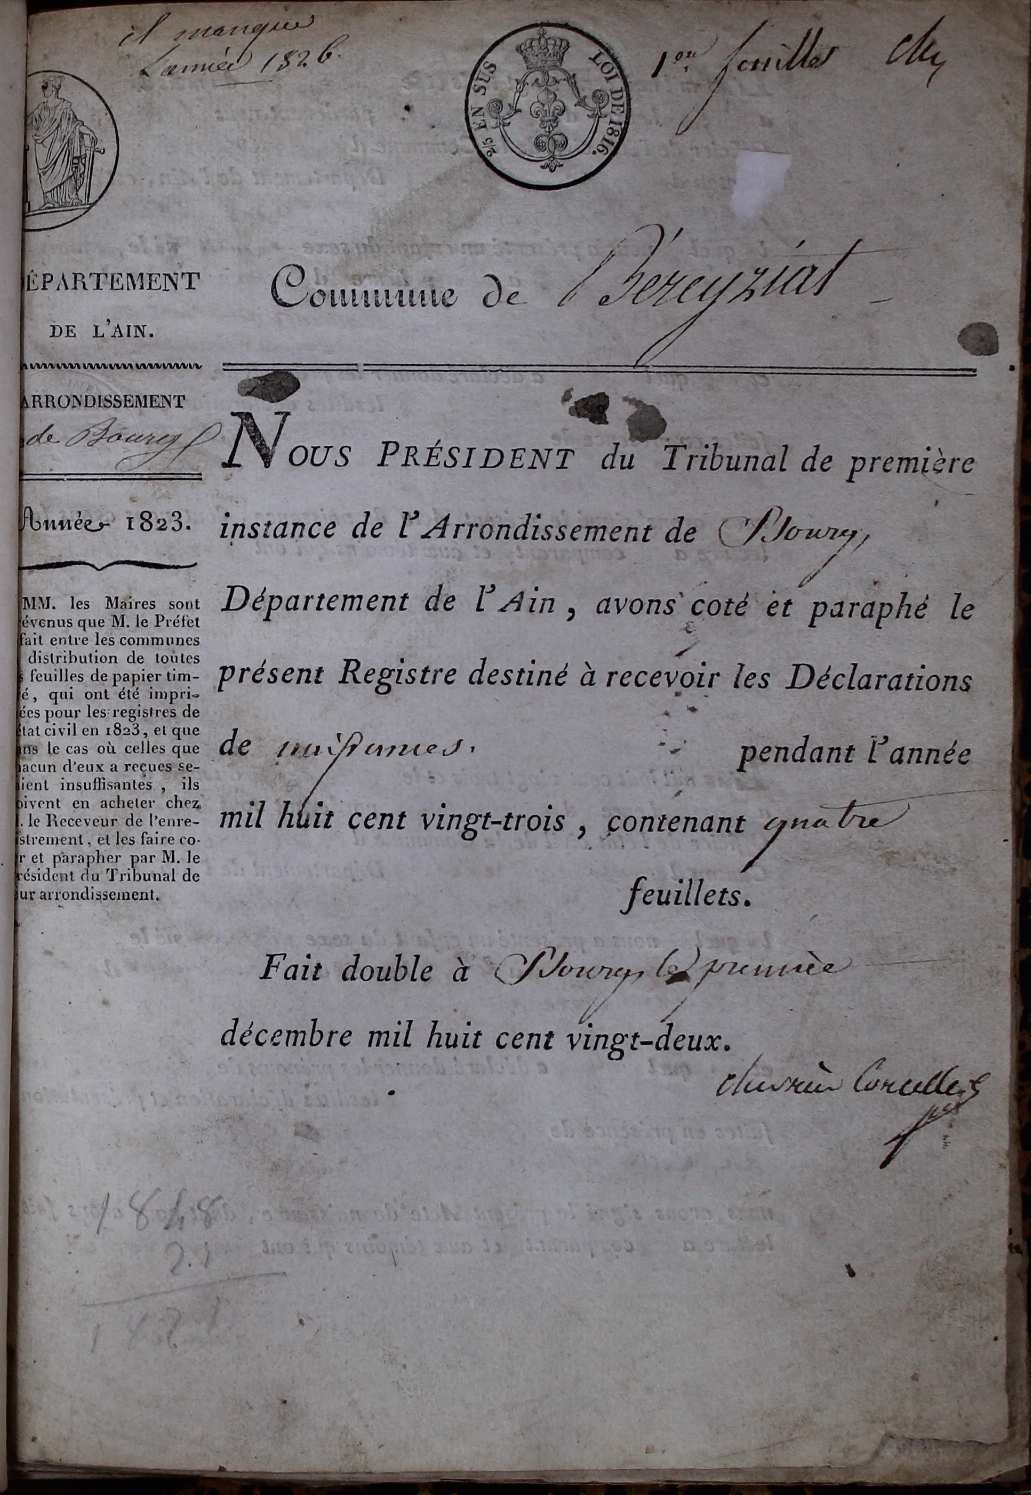 il manque
l'année 1826.
2/5 EN SUS
LOI DE 1816.
1er feuillet
ÉPARTEMENT
DE L'AIN.
Commune de Béreyziat
ARRONDISSEMENT
de Bourg
Année 1823.
MM. les Maires sont
évenus que M. le Préfet
fait entre les communes
distribution de toutes
s feuilles de papier tim-
é, qui ont été impri-
ées pour les registres de
état civil en 1823, et que
ans le cas où celles que
hacun d'eux a reçues se-
aient insuffisantes, ils
oivent en acheter chez
. le Receveur de l'enre-
istrement, et les faire co-
r et parapher par M. le
résident du Tribunal de
ur arrondissement.
NOUS PRÉSIDENT du Tribunal de première
instance de l'Arrondissement de Bourg,
Département de l'Ain, avons coté et paraphé le
présent Registre destiné à recevoir les Déclarations
de naissances. pendant l'année
mil huit cent vingt-trois, contenant quatre
feuillets.
Fait double à Bourg, le premier
décembre mil huit cent vingt-deux.
chevrier Corcelles
1848